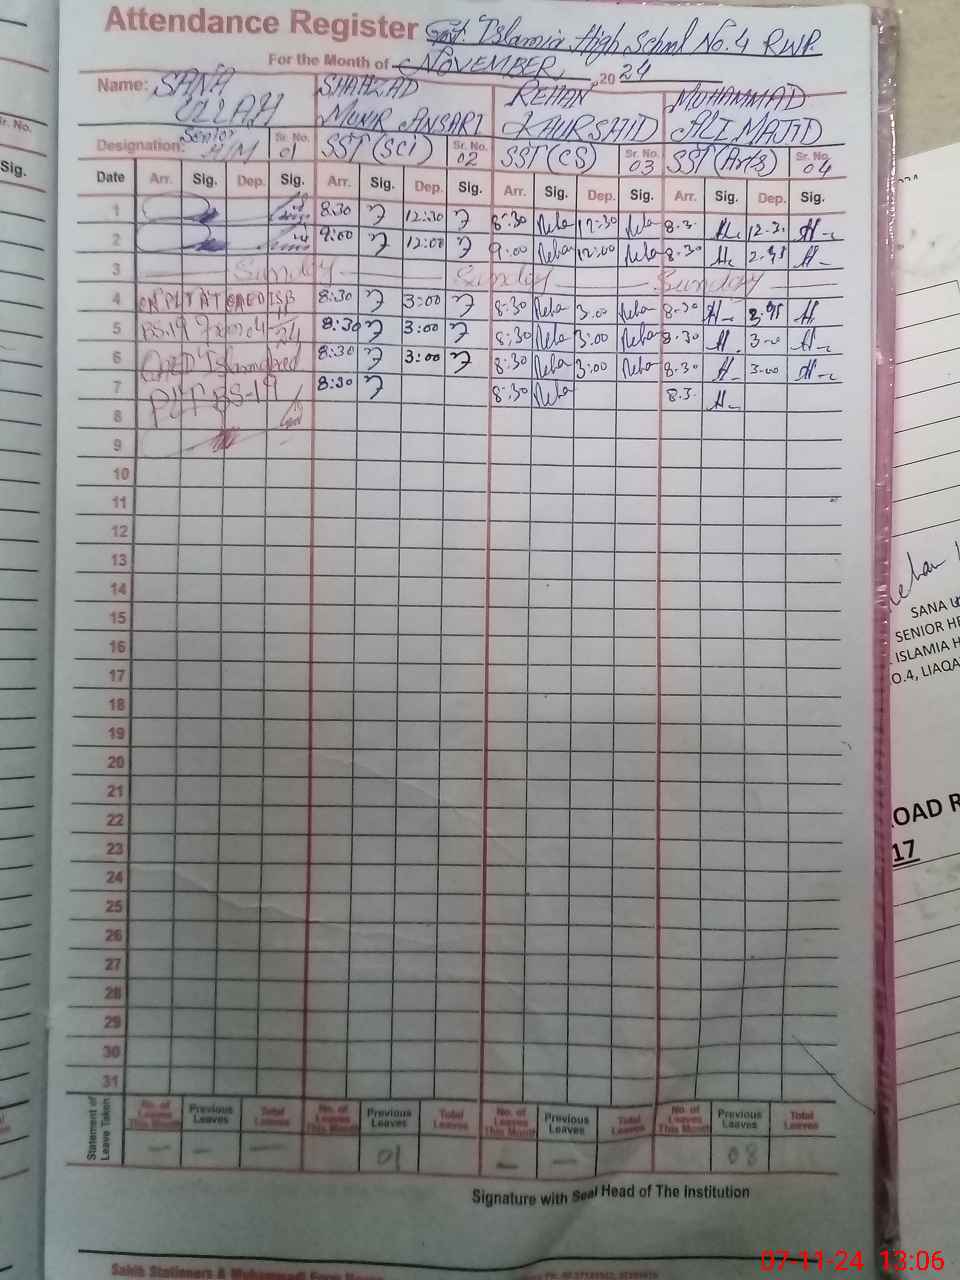 Attendance Register Govt. Islamia High School No. 4 RWP.
For the Month of NOVEMBER, 2024
Name: SANA ULLAH SHAHZAD MUNIR ANSARI REHAN KHURSHID MUHAMMAD ALI MAJID
Designation: Senior H/M Sr. No. 01 SST (SCI) Sr. No. 02 SST (CS) Sr. No. 03 SST (Arts) Sr. No. 04
Date Arr. Sig. Dep. Sig. Arr. Sig. Dep. Sig. Arr. Sig. Dep. Sig. Arr. Sig. Dep. Sig.
1 8:30 12:30 8:30 Reha 12:30 Reha 8.3. 12.3.
2 9:00 12:00 9:00 Reha 12:00 Reha 8.30
3 Sunday Sunday Sunday
4 ON PLT AT QAED ISB 8:30 3:00 8:30 Reha 3:00 Reha 8.30
5 BS-19 8:30 3:00 8:30 Reha 3:00 Reha 8.30 3-00
6 QAED Islamabad 8:30 3:00 8:30 Reha 3:00 Reha 8.30 3-00
7 PLT BS-19 8:30 8:30 Reha 8.3.
8
9
10
11
12
13
14
15
16
17
18
19
20
21
22
23
24
25
26
27
28
29
30
31
Statement of Leave Taken
No. of Leaves This Month Previous Leaves Total Leaves No. of Leaves This Month Previous Leaves Total Leaves No. of Leaves This Month Previous Leaves Total Leaves No. of Leaves This Month Previous Leaves Total Leaves
— — — 01 — — 08
Signature with Seal Head of The Institution
Sahib Stationers &
Sr. No.
Sig.
SANA U
SENIOR HE
ISLAMIA H
O.4, LIAQA
OAD R
17
07-11-24 13:06